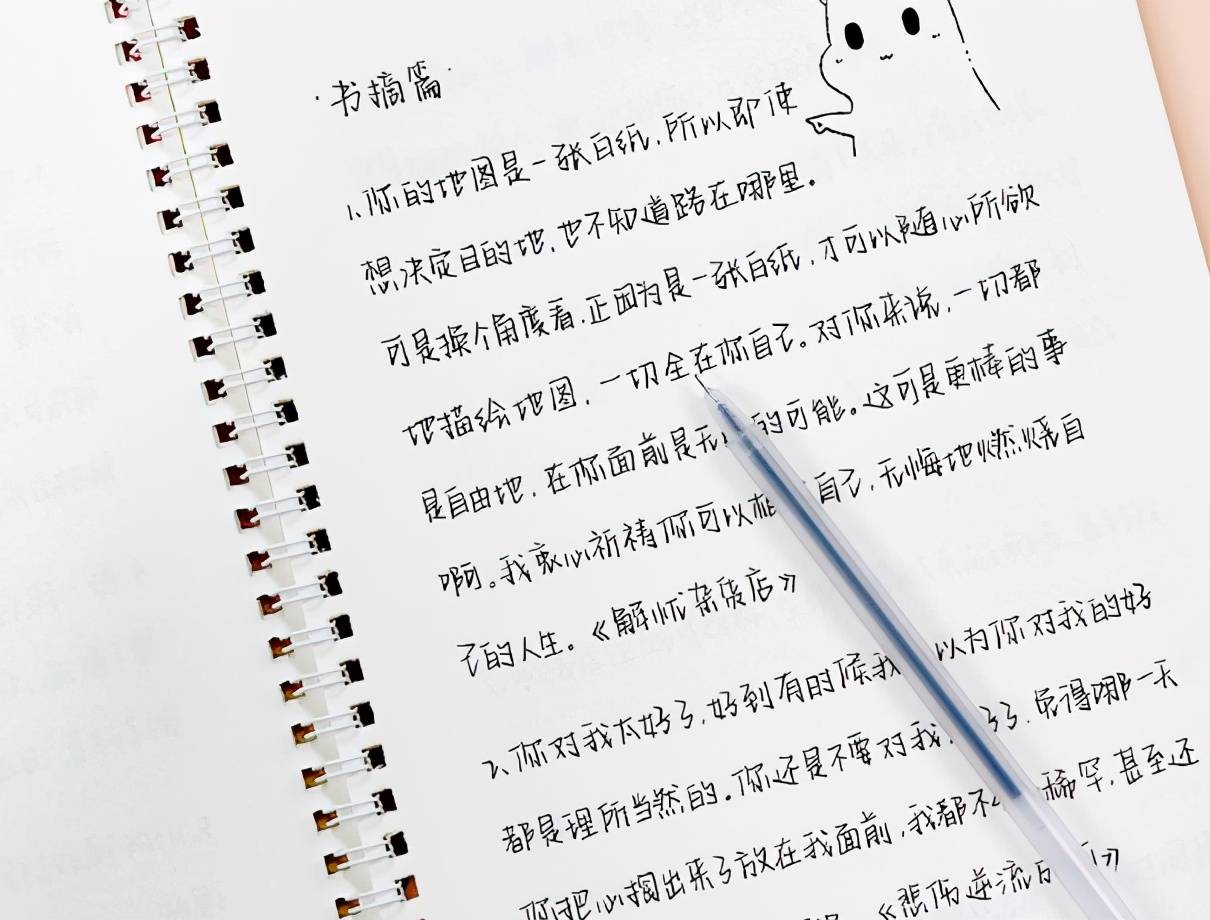 ·书摘篇·
1、你的地图是一张白纸,所以即使
想决定目的地,也不知道路在哪里。
可是换个角度看,正因为是一张白纸,才可以随心所欲
地描绘地图,一切全在你自己。对你来说,一切都
是自由地,在你面前是无的可能。这可是更棒的事
啊。我衷心祈祷你可以相自己,无悔地燃烧自
己的人生。《解忧杂货店》
2、你对我太好了,好到有时候我以为你对我的好
都是理所当然的。你还是不要对我了,免得哪一天
你把心掏出来了放在我面前,我都不稀罕,甚至还
《悲伤逆流